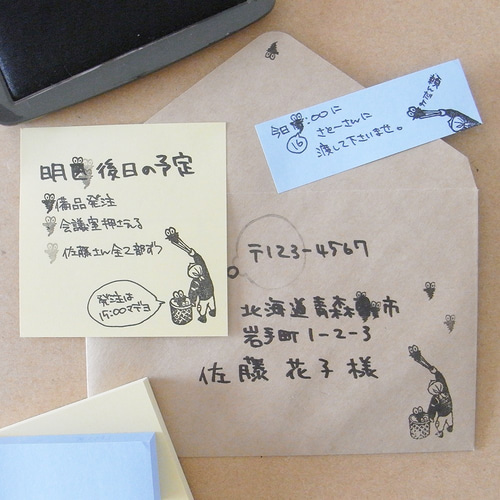 頼んだよ
今日 :00に
16
さとーさんに
渡して下さいませ。
明 後日の予定
備品発注
会議室押さえる
佐藤さん全て部ずつ
発注は
15:00マデヨ
〒123-4567
北海道青森 市
岩手町1-2-3
佐藤 花子 様